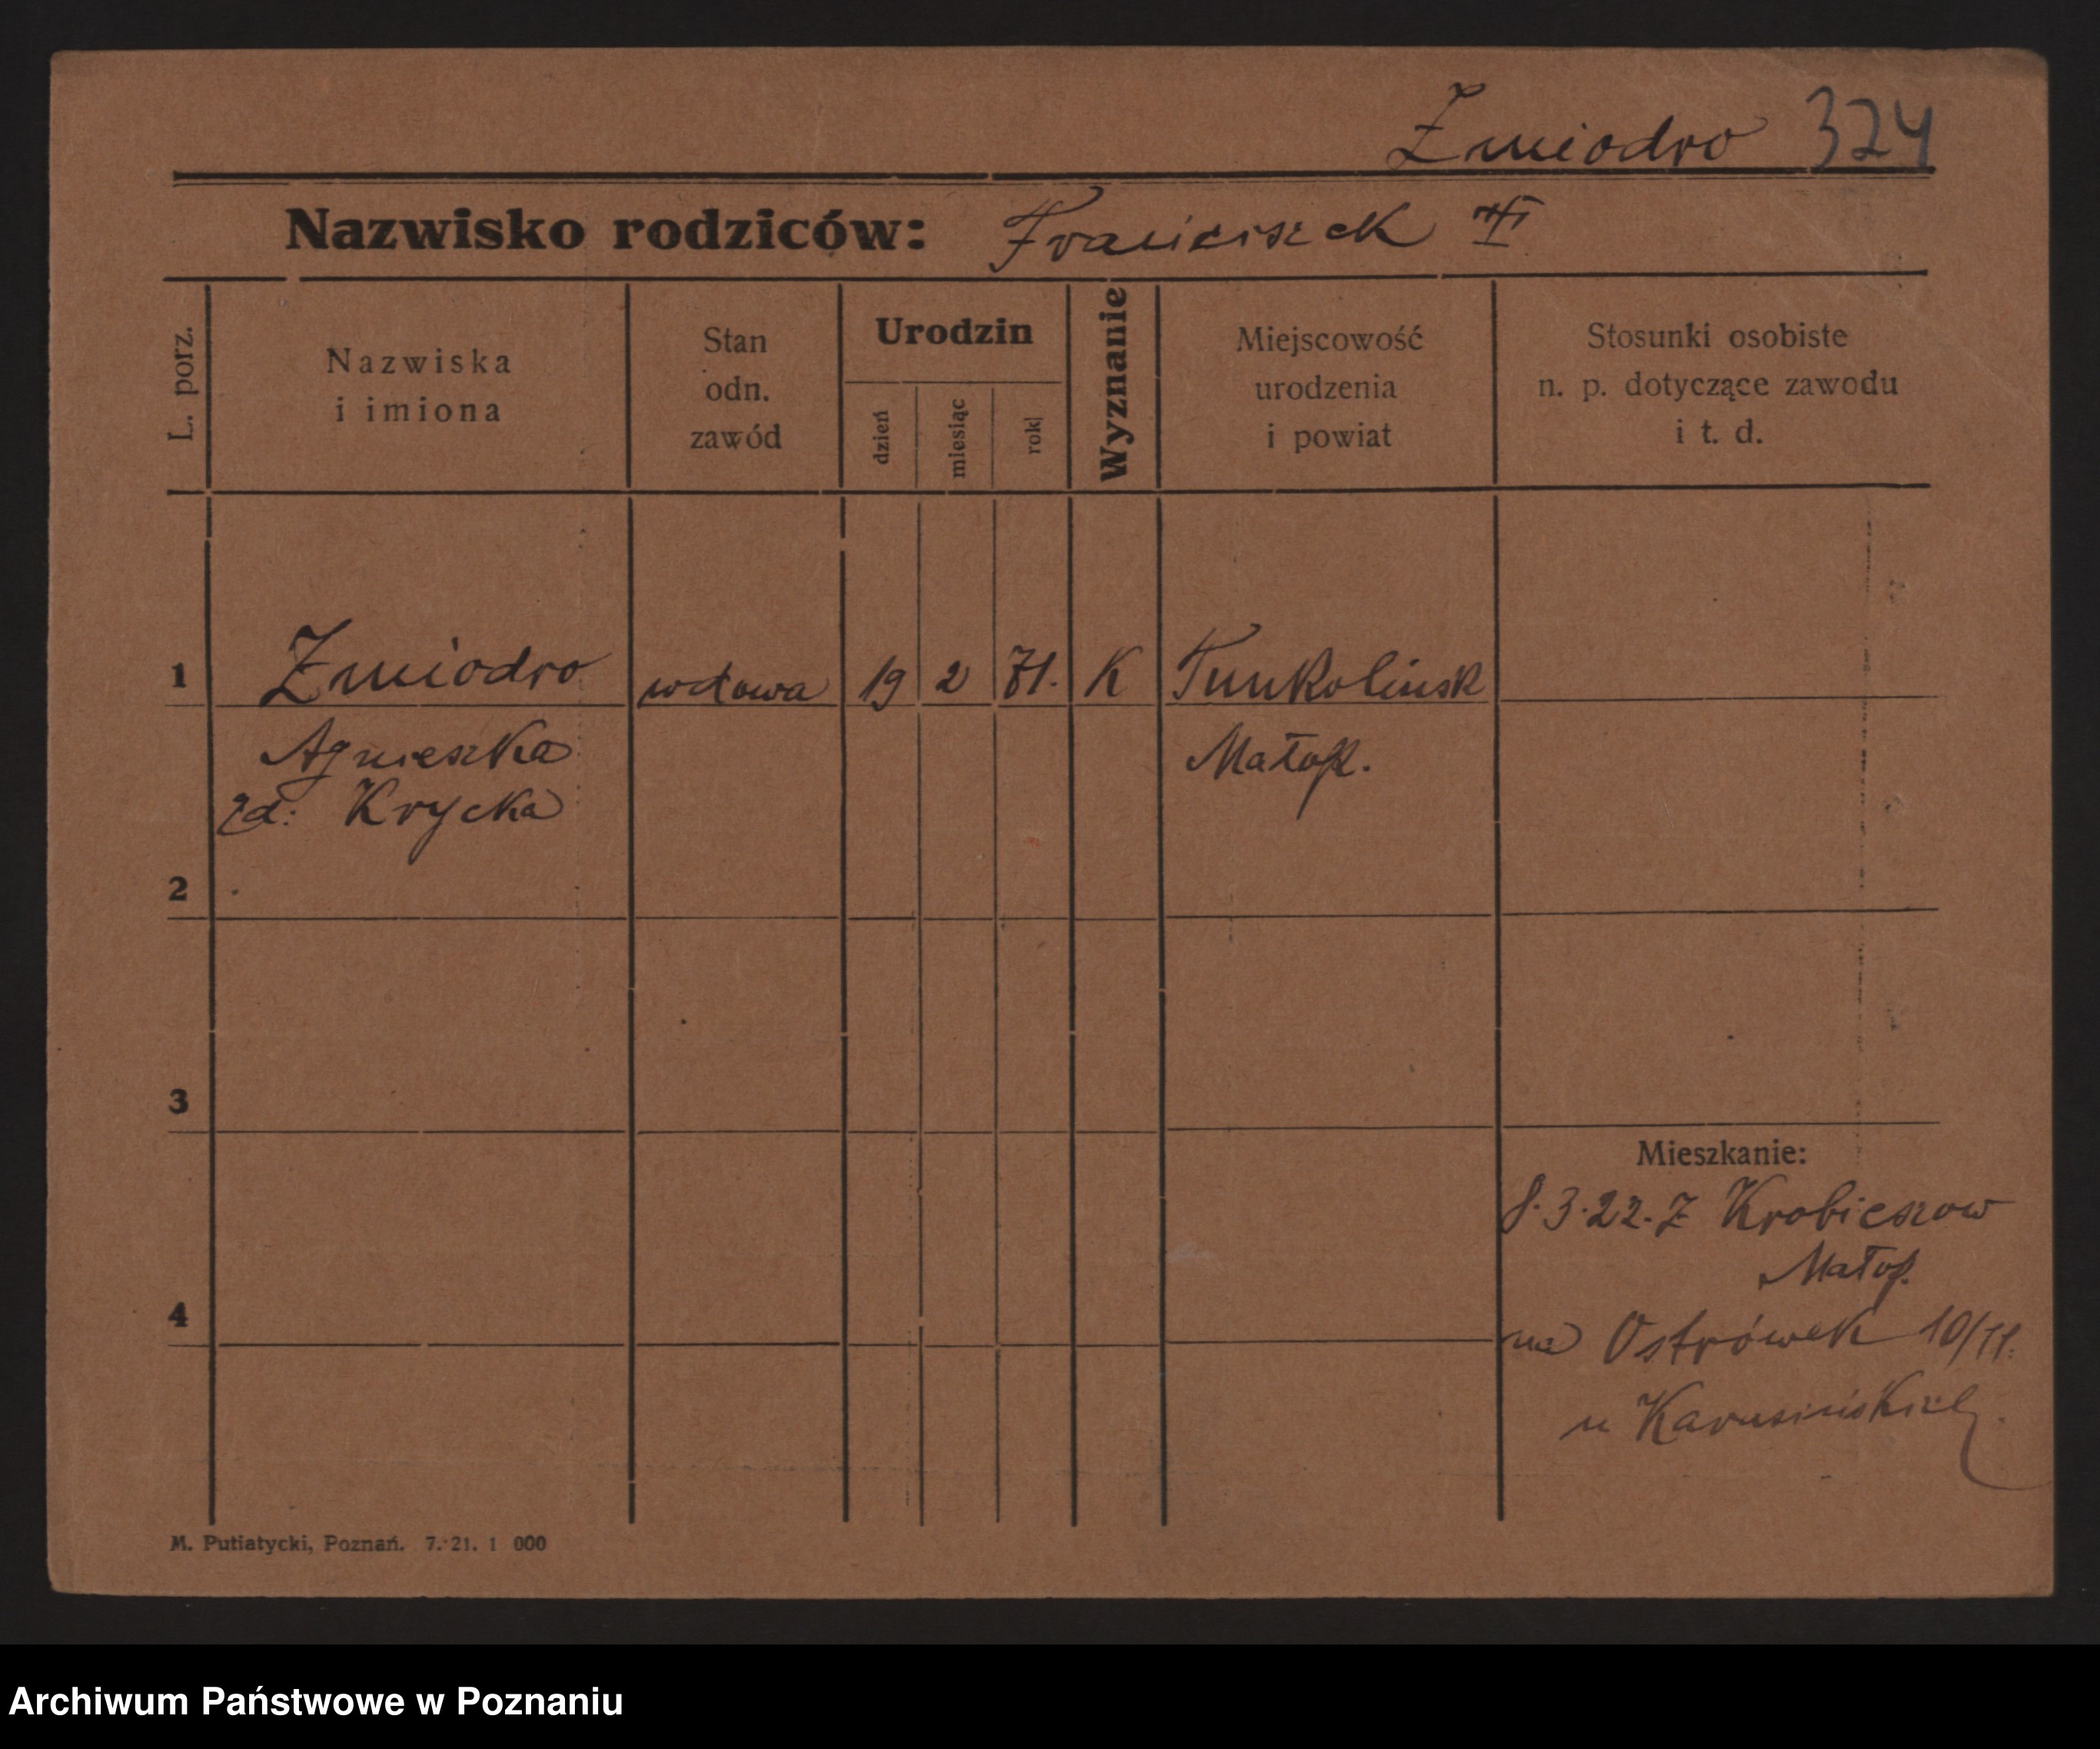 Zmiodro 324
Nazwisko rodziców: Franciszek
L. porz.
Nazwiska
i imiona
Stan
odn.
zawód
Urodzin
dzień
miesiąc
rok
Wyznanie
Miejscowość
urodzenia
i powiat
Stosunki osobiste
n. p. dotyczące zawodu
i t. d.
1 Zmiodro wdowa 19 2 71. K Tunkolinsk
Agnieszka Małop.
zd: Krycka
2
3
Mieszkanie:
8.3.22. Z Krobieszow
Małop.
4
na Ostrówek 10/11.
u
M. Putiatycki, Poznań. 7. 21. 1 000
Archiwum Państwowe w Poznaniu